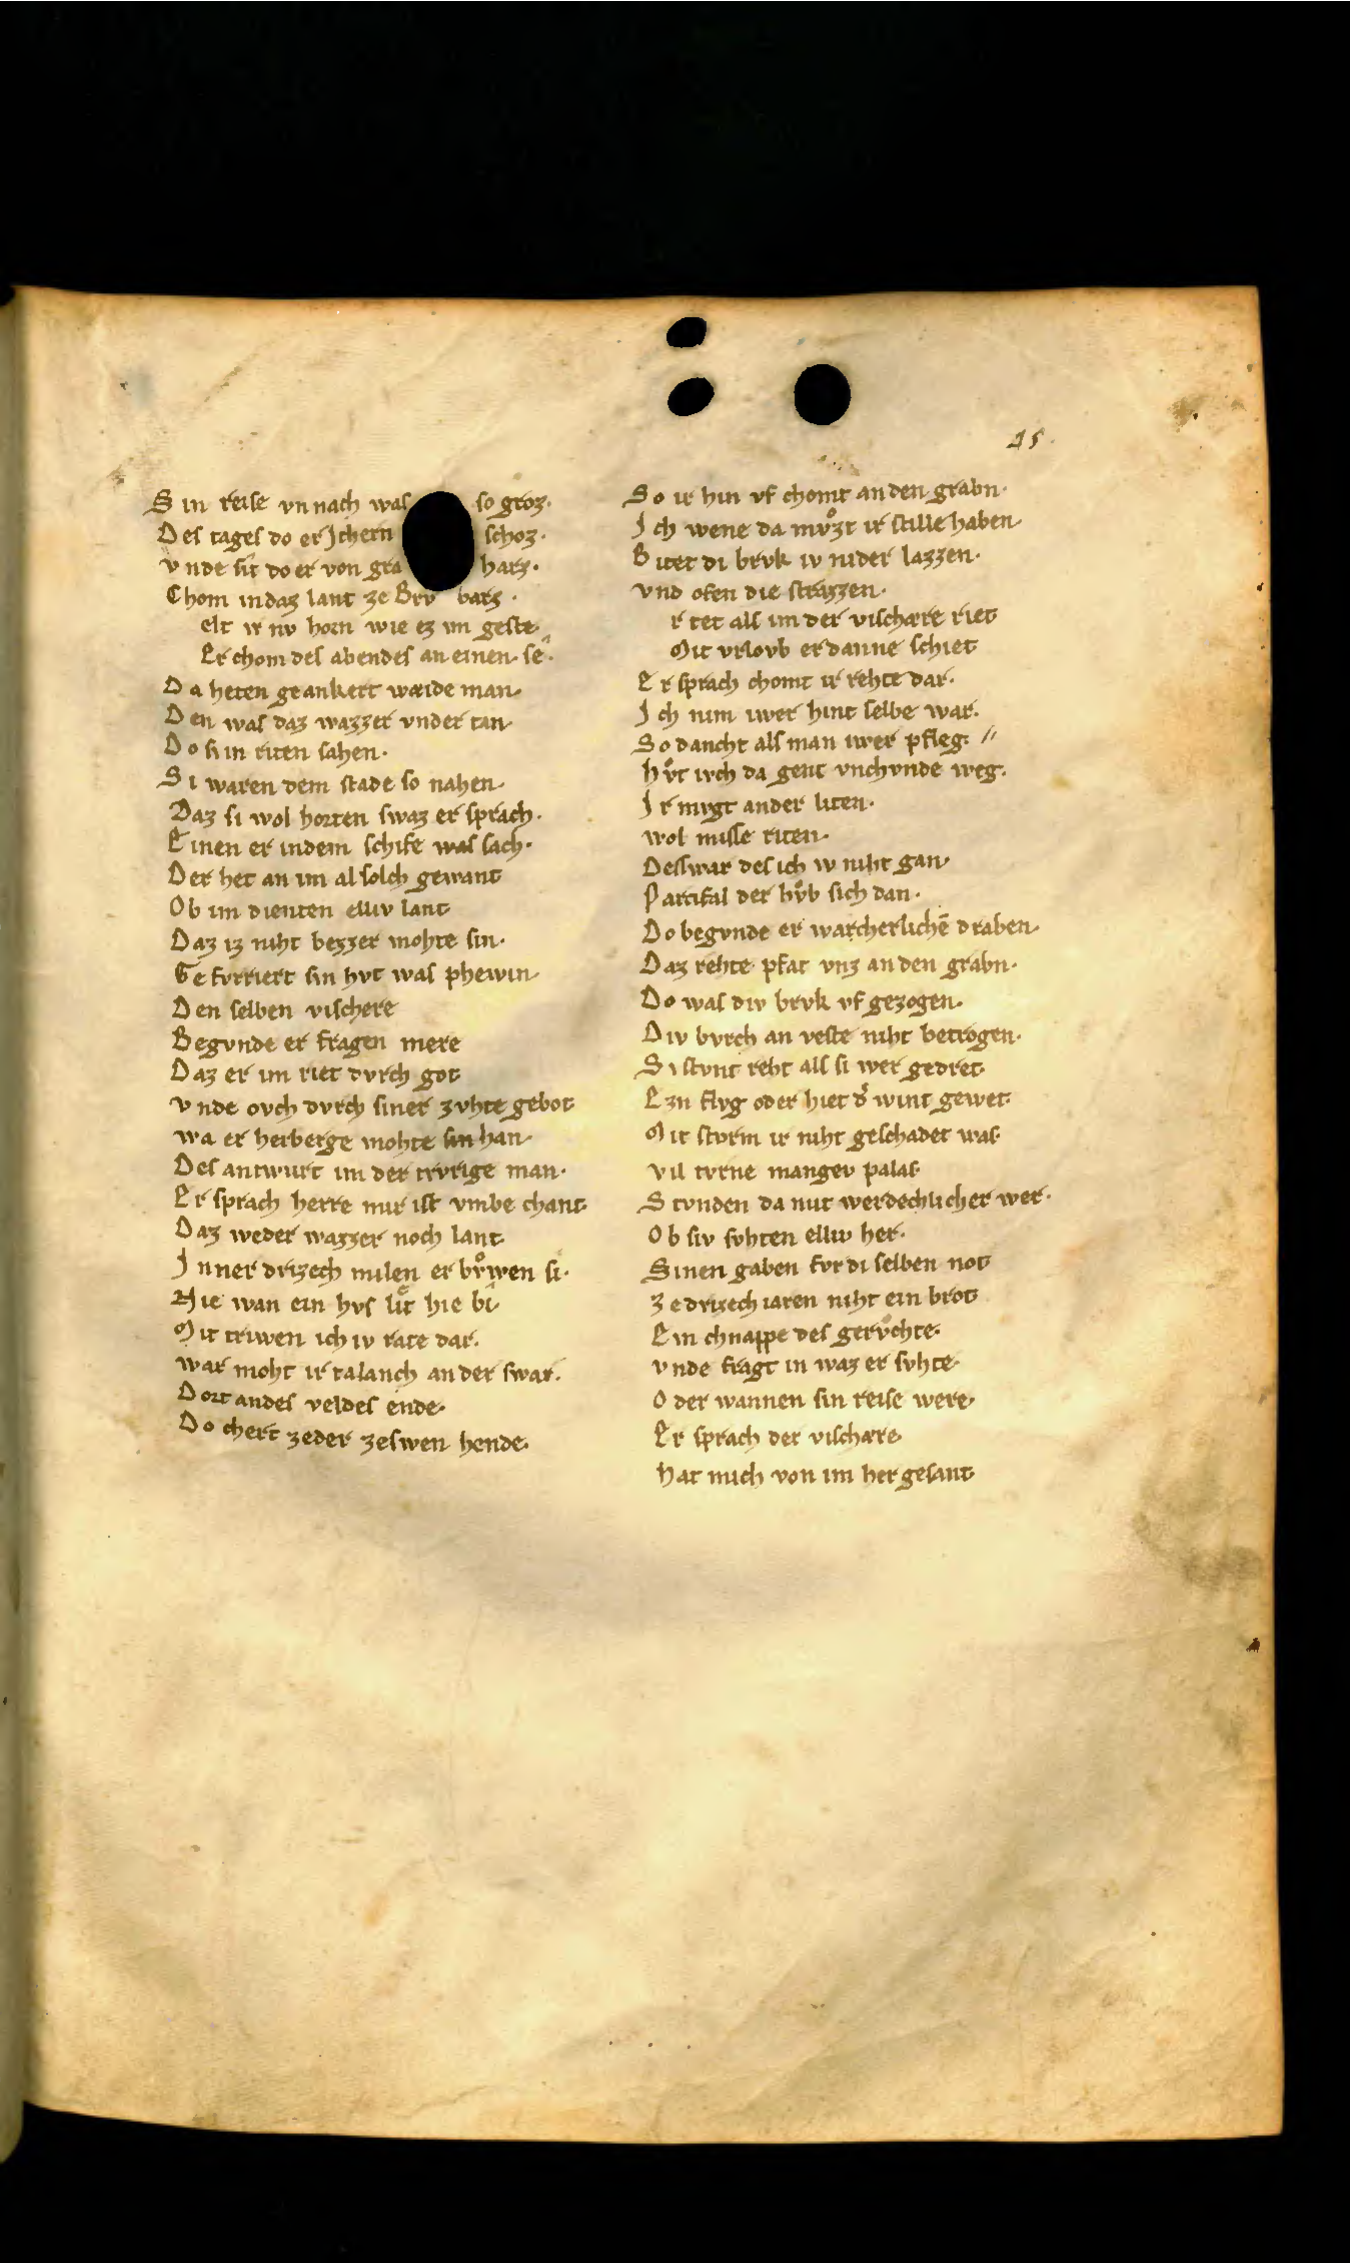 45.
Sin reise vn nach was so groz.
Des tages do er Ichern schoz.
vnde sit do er von gra harz.
Chom in daz lant ze Brv barz.
elt ir nv horn wie ez im geste.
Er chom des abendes an einen se.
Da heten geankert wæide man.
Den was daz wazzer vnder tan.
Do si in riten sahen.
Si waren dem stade so nahen.
Daz si wol horten swaz er sprach.
Einen er in dem schife was sach.
Der het an im al solch gewant
Ob im dienten elliv lant
Daz iz niht bezzer mohte sin.
Gefvrriert sin hvt was phewin.
Den selben vischere
Begvnde er fragen mere
Daz er im riet dvrch got
vnde ovch dvrch siner zvhte gebot
wa er herberge mohte sin han.
Des antwurt im der trvrige man.
Er sprach herre mir ist vmbe chant.
Daz weder wazzer noch lant
Inner drizech milen er bvͦwen si.
Hie wan ein hvs lit hie bi.
Mit triwen ich iv rate dar.
war moht ir talanch ander swar.
Dort an des veldes ende.
Do chert ze der zeswen hende.
So ir hin vf chomt an den grabn.
Ich wene da mvͦzt ir stille haben.
Bitet di brvk iv nider lazzen.
vnd ofen die strazzen.
r tet als im der vischære riet
Mit vrlovb er danne schiet
Er sprach chomt ir rehte dar.
Ich nim iwer hint selbe war.
So dancht als man iwer pfleg. //
hvͤt ivch da gent vnchvnde weg.
Ir mvgt an der liten.
wol misse riten.
Deswar des ich iv niht gan.
Parcifal der hvͦb sich dan.
Do begvnde er warcherlichē draben.
Daz rehte pfat vnz an den grabn.
Do was div brvk vf gezogen.
Div bvrch an veste niht betrogen.
Si stvnt reht als si wer gedret.
Ezn flvg oder hiet d' wint gewet.
Mit stvrm ir niht geschadet was.
vil tvrne mangev palas.
Stvnden da mit werdechlicher wer.
Ob siv svhten elliv her.
Sinen gaben fvr di selben not
Ze drizech iaren niht ein brot
Ein chnappe des gerv̊chte.
vnde fragt in waz er svhte.
Oder wannen sin reise were.
Er sprach der vischære.
hat mich von im her gesant.